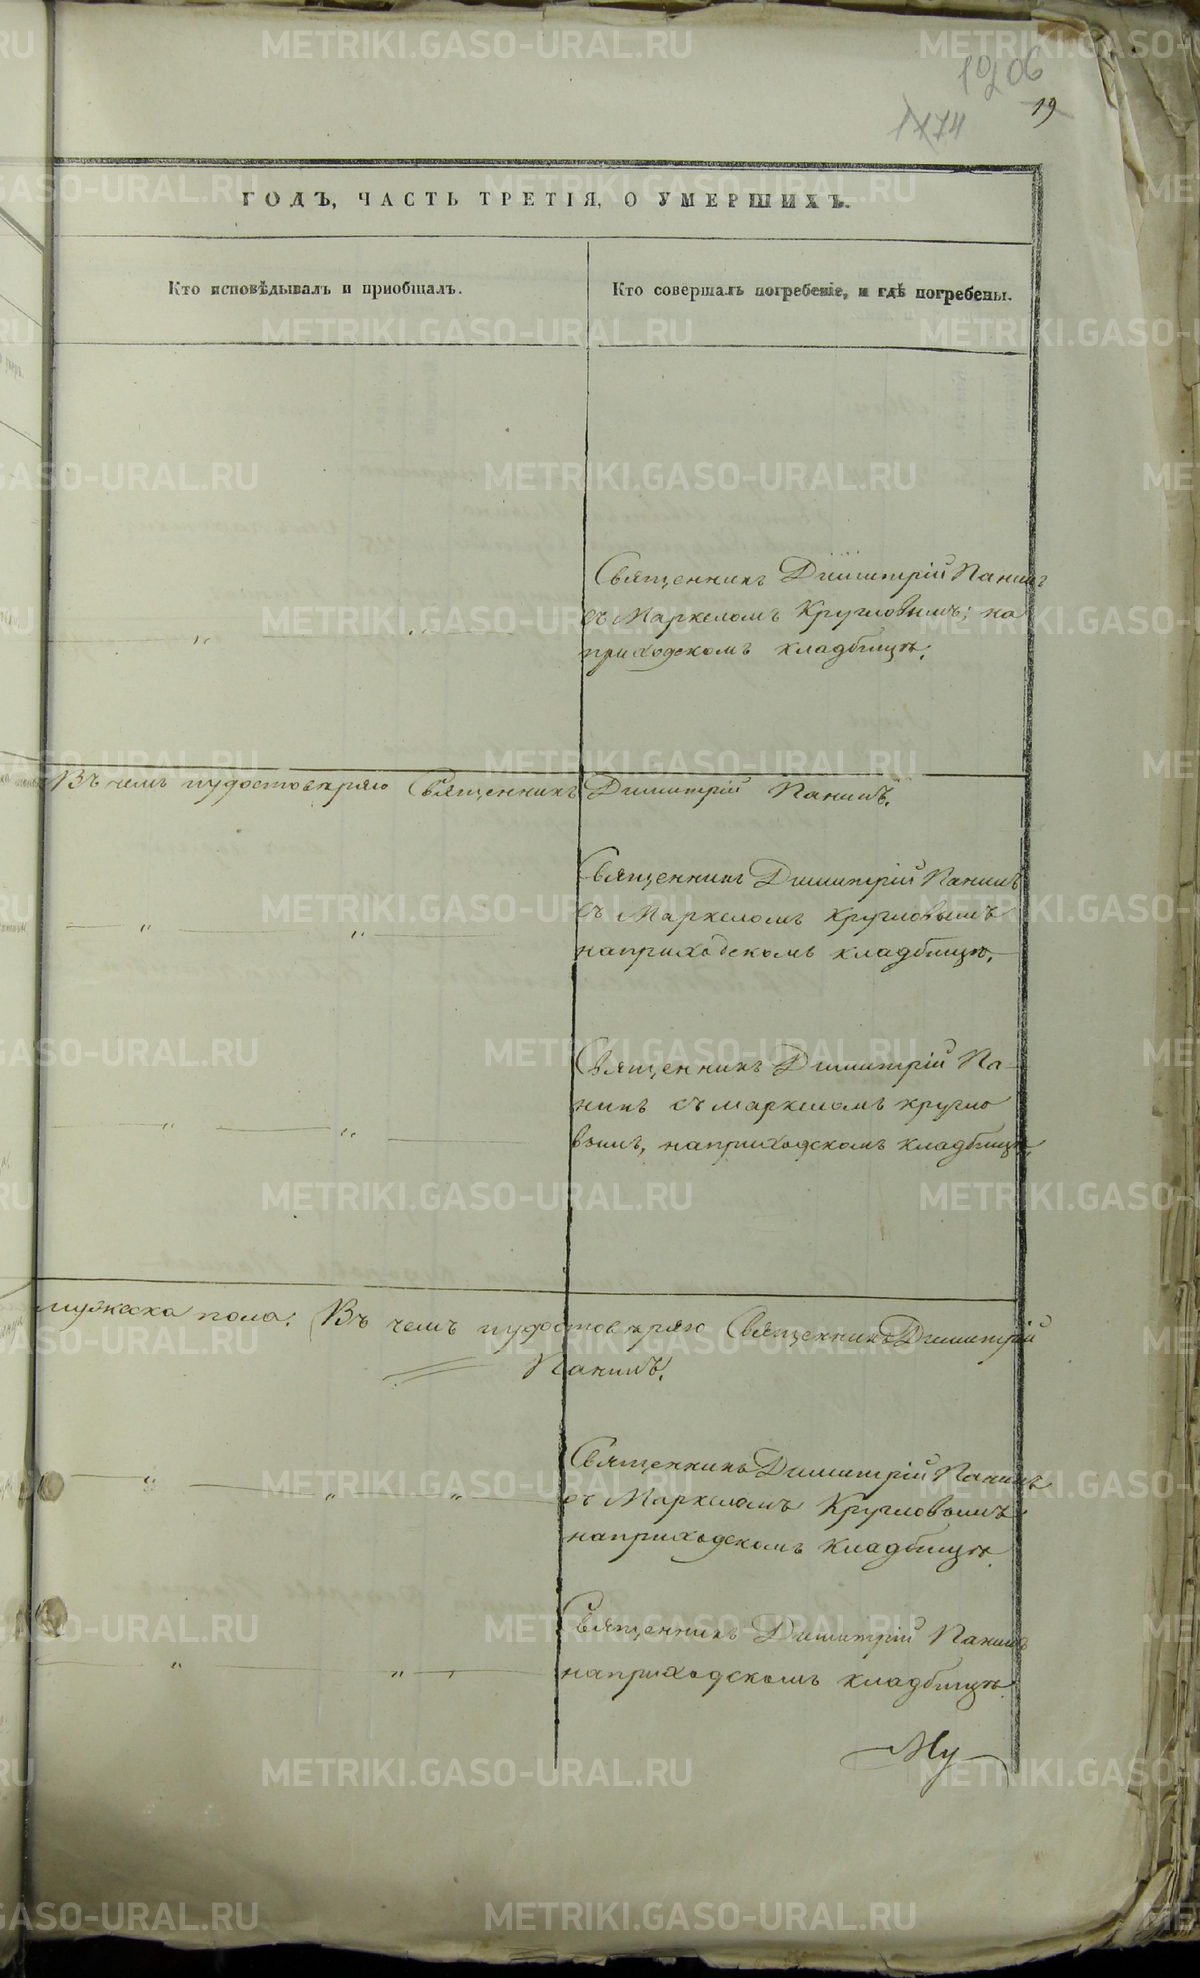 1206
1174
19
ГОДЪ, ЧАСТЬ ТРЕТІЯ, О УМЕРШИХЪ.
Кто исповѣдывалъ и пріобщалъ.
Кто совершалъ погребеніе, и гдѣ погребены.
Священникъ Димитрій Панинъ
съ Маркеломъ Кругловымъ; на
приходскомъ кладбищѣ.
Въ чемъ и удостовѣряю Священникъ Димитрій Панинъ.
Священникъ Димитрій Панинъ
съ Маркеломъ Кругловымъ
на приходскомъ кладбищѣ.
Священникъ Димитрій Па-
нинъ съ Маркеломъ Кругло
вымъ, на приходскомъ кладбищѣ.
мужеска пола. Въ чемъ и удостовѣряю Священникъ Димитрій
Панинъ.
Священникъ Димитрій Панинъ
съ Маркеломъ Кругловымъ
на приходскомъ кладбищѣ.
Священникъ Димитрій Панинъ
на приходскомъ кладбищѣ.
Му
METRIKI.GASO-URAL.RU